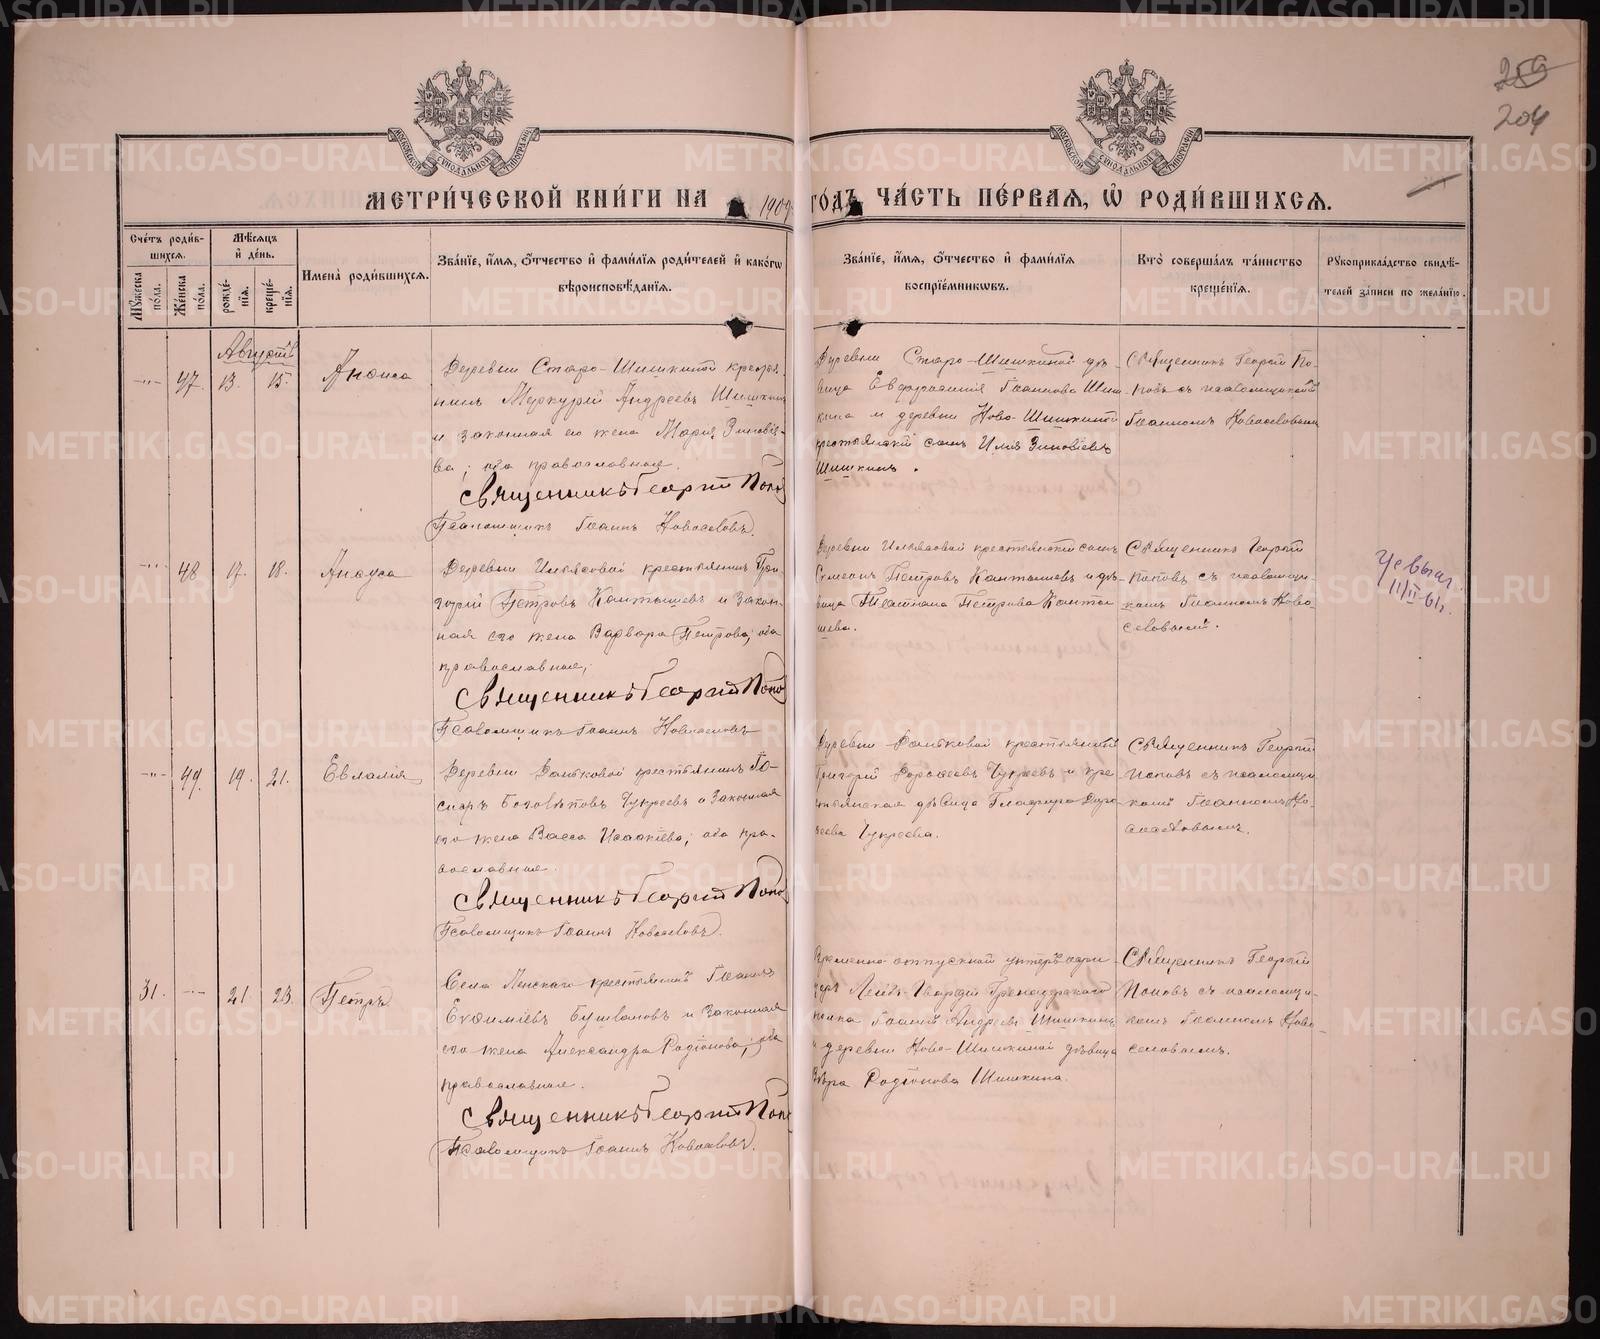 259
204
МОСКОВСКОЙ СѴНОДАЛЬНОЙ ТИПОГРАФІИ
МОСКОВСКОЙ СѴНОДАЛЬНОЙ ТИПОГРАФІИ
МЕТРИ́ЧЕСКОЙ КНИ́ГИ НА 1909 ГО́ДЪ ЧА́СТЬ ПЕ́РВАѦ, Ѡ҆ РОДИ́ВШИХСѦ.
Сче́тъ роди́в-
шихсѧ.
Мꙋ́жеска по́ла.
Же́нска по́ла.
Мѣ́сѧцъ и҆ де́нь.
рожде́-
нїѧ.
креще́-
нїѧ.
И҆мена̀ роди́вшихсѧ.
Зва́нїе, и҆́мѧ, ѻ҆́тчество и҆ фами́лїѧ роди́телей и҆ како́гѡ
вѣроисповѣ́данїѧ.
Зва́нїе, и҆́мѧ, ѻ҆́тчество и҆ фами́лїѧ
воспрїе́мникѡвъ.
Кто̀ соверша́лъ та́инство
креще́нїѧ.
Рꙋкоприкла́дство свидѣ́-
телей за́писи по жела́нїю.
Августъ
47. 13. 15. Анѳиса
Деревни Старо-Шишкиной крестья-
нинъ Меркурій Андреевъ Шишкинъ
и законная его жена Марія Зиновіе-
ва; оба православные.
Священникъ Георгій Попо
Псаломщикъ Іоаннъ Новоселовъ.
Деревни Старо-Шишкиной дѣ-
вица Евфросинія Іоаннова Шиш-
кина и деревни Ново-Шишкиной
крестьянскій сынъ Илія Зиновіевъ
Шишкинъ.
Священникъ Георгій По-
повъ съ псаломщикомъ
Іоанномъ Новоселовымъ
48 17. 18. Анѳуса
Деревни крестьянинъ Гри-
горій Петровъ Кантышевъ и закон-
ная его жена Варвара Петрова; оба
православные;
Священникъ Георгій Попо
Псаломщикъ Іоаннъ Новоселовъ
Деревни крестьянскій сынъ
Симеонъ Петровъ Кантышевъ и дѣ-
вица Татіана Петрова Канты-
шева.
Священникъ Георгій
Поповъ съ псаломщи-
комъ Іоанномъ Ново-
селовымъ.
11/II-61г.
49. 19. 21. Евлалія
Деревни крестьянинъ Іо-
сифъ Чукреевъ и законная
его жена Васса Исаакіева; оба пра-
вославные.
Священникъ Георгій Попо
Псаломщикъ Іоаннъ Новоселовъ.
Деревни крестьянинъ
Григорій Дороѳеевъ Чукреевъ и кре-
стьянская дѣвица Глафира Доро-
ѳеева Чукреева.
Священникъ Георгій
Поповъ съ псаломщи-
комъ Іоанномъ Но-
воселовымъ.
31. 21 23. Петръ
Села Ленскаго крестьянинъ Іоаннъ
Евѳиміевъ Бушлановъ и законная
его жена Александра Родіонова; оба
православные.
Священникъ Георгій Попо
Псаломщикъ Іоаннъ Новоселовъ.
Временно-отпускной унтеръ-офи-
церъ Лейбъ-Гвардіи Гренадерскаго
полка Іоаннъ Андреевъ Шишкинъ
и деревни Ново-Шишкиной дѣвица
Вѣра Родіонова Шишкина.
Священникъ Георгій
Поповъ съ псаломщи-
комъ Іоанномъ Ново-
селовымъ.
METRIKI.GASO-URAL.RU